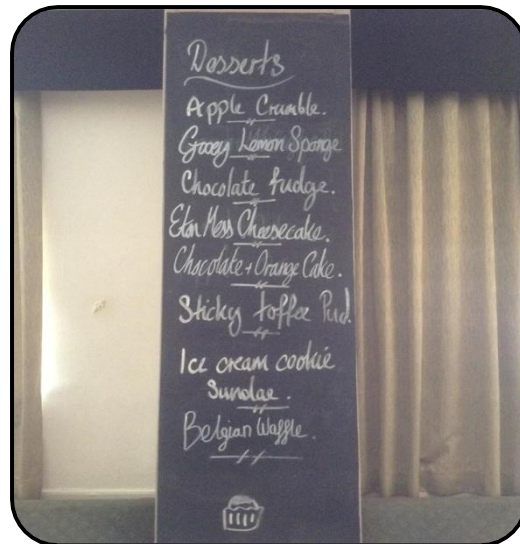 Desserts
Apple Crumble.
Gooey Lemon Sponge
Chocolate fudge.
Eton Mess Cheesecake.
Chocolate + Orange Cake.
Sticky toffee Pud.
Ice cream cookie
Sundae.
Belgian Waffle.